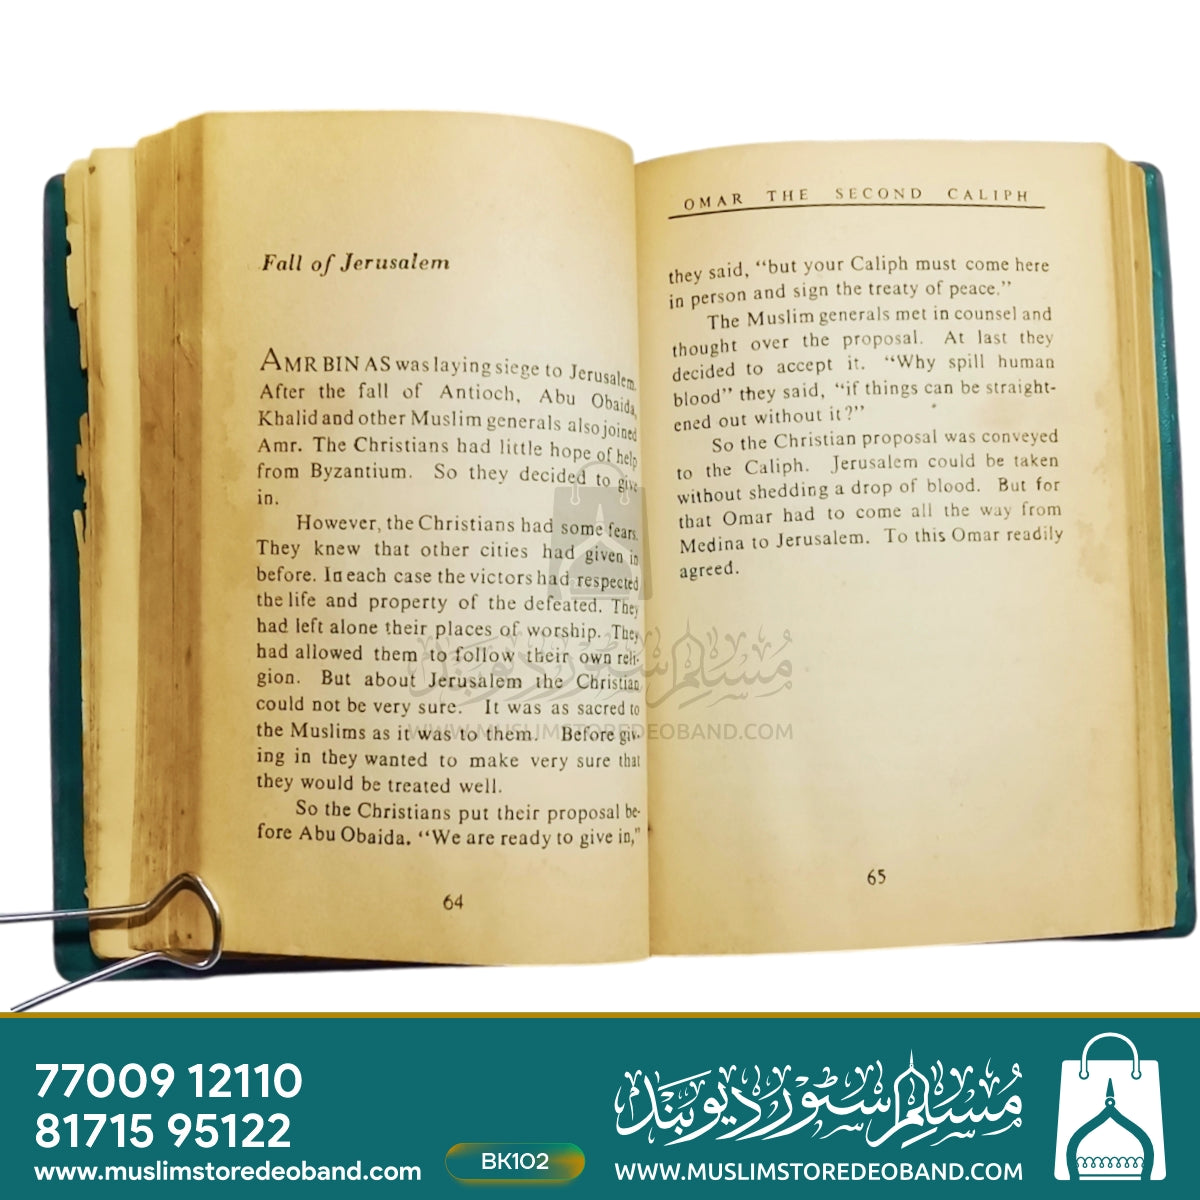 Fall of Jerusalem
AMR BIN AS was laying siege to Jerusalem.
After the fall of Antioch, Abu Obaida,
Khalid and other Muslim generals also joined
Amr. The Christians had little hope of help
from Byzantium. So they decided to give
in.
However, the Christians had some fears.
They knew that other cities had given in
before. In each case the victors had respected
the life and property of the defeated. They
had left alone their places of worship. They
had allowed them to follow their own reli-
gion. But about Jerusalem the Christian
could not be very sure. It was as sacred to
the Muslims as it was to them. Before giv-
ing in they wanted to make very sure that
they would be treated well.
So the Christians put their proposal be-
fore Abu Obaida. “We are ready to give in,”
64
OMAR THE SECOND CALIPH
they said, “but your Caliph must come here
in person and sign the treaty of peace.”
The Muslim generals met in counsel and
thought over the proposal. At last they
decided to accept it. “Why spill human
blood” they said, “if things can be straight-
ened out without it?”
So the Christian proposal was conveyed
to the Caliph. Jerusalem could be taken
without shedding a drop of blood. But for
that Omar had to come all the way from
Medina to Jerusalem. To this Omar readily
agreed.
65
مسلم سٹور دیوبند
WWW.MUSLIMSTOREDEOBAND.COM
77009 12110
81715 95122
www.muslimstoredeoband.com
BK102
مسلم سٹور دیوبند
WWW.MUSLIMSTOREDEOBAND.COM